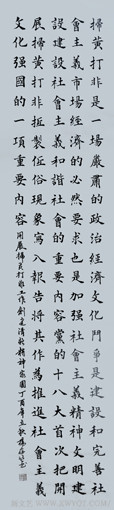 掃黃打非是一場嚴肅的政治經濟文化鬥爭是建設和完善社
會主義市場經濟的必然要求也是加強社會主義精神文明
設建設社會主義和諧社會的重要內容黨的十八大首次把開
展掃黃打非抵製低俗現象寫入報告將其作為推進社會主義
文化強國的一項重要內容
掃黃打非工作創建清朗精神家園丁酉年立秋楊